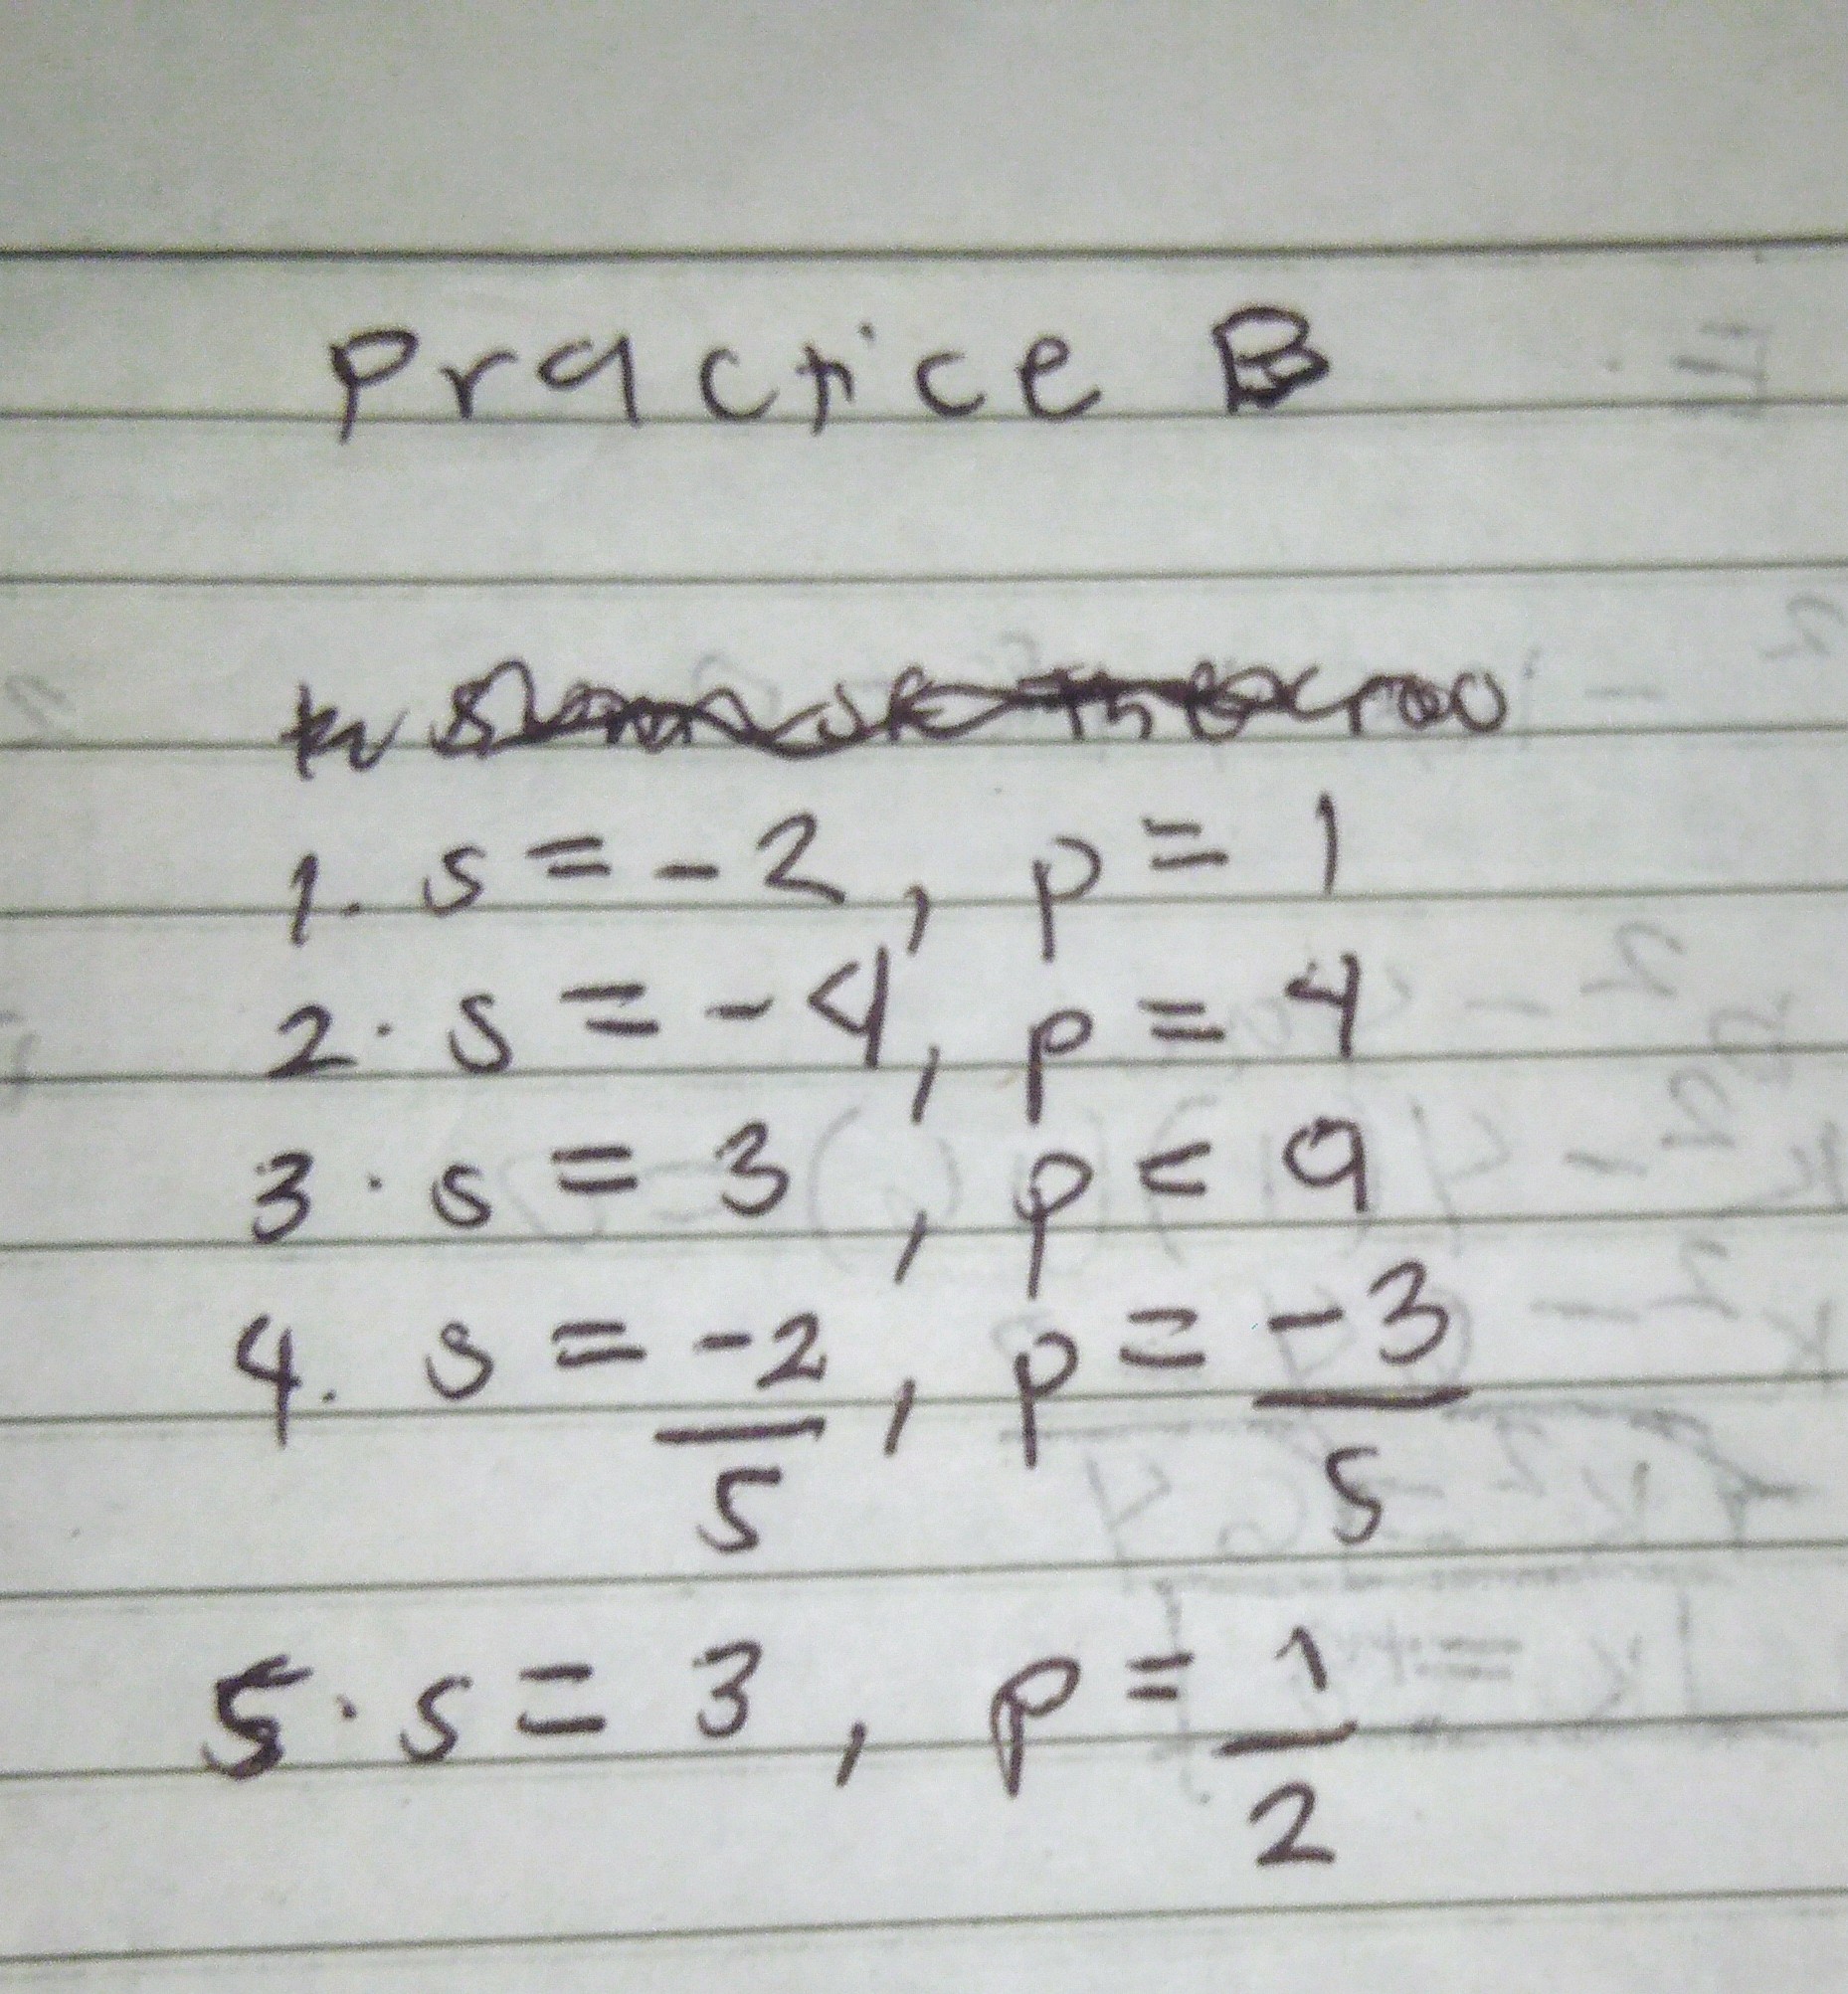 Practice B
1. s = -2, p = 1
2. s = -4, p = 4
3. s = 3, p = 9
4. s = -2/5, p = -3/5
5. s = 3, p = 1/2